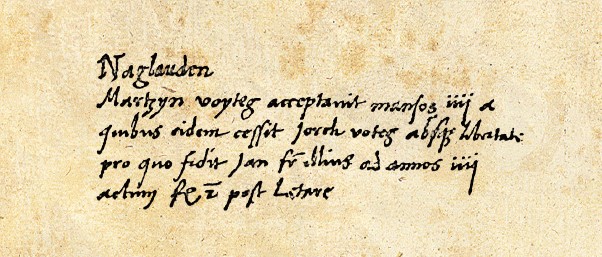 Naglauden
Martzyn voyteg acceptavit mansos iiij a
quibus eidem cessit Jorch voteg absque libertate
pro quo fidit Jan illius ad annos iiij
actum post Letare